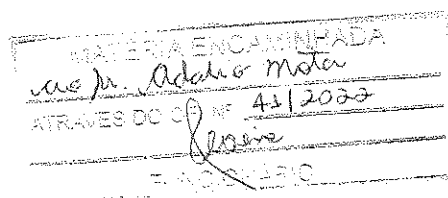 MATÉRIA ENCAMINHADA
ao Sr. Adalio Mota
ATRAVÉS DO OF. Nº 41/2022
FUNCIONÁRIO